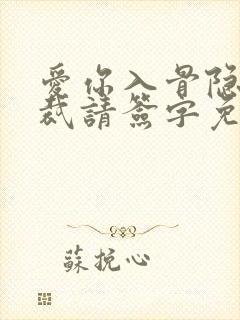 愛你入骨隐
裁請簽字免
蘇挽心